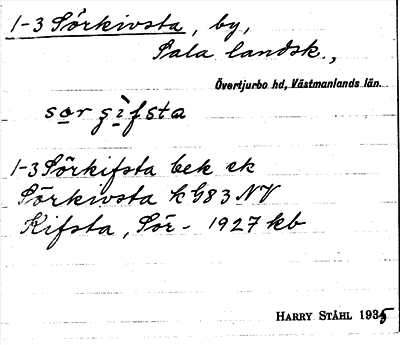 1-3 Sörkivsta, by,
Sala landsk.,
Övertjurbo hd, Västmanlands län.
sør ʂìfsta
1-3 Sörkifsta bek ek
Sörkivsta k G83 NV
Kifsta, Sör- 1927 kb
HARRY STÅHL 1935